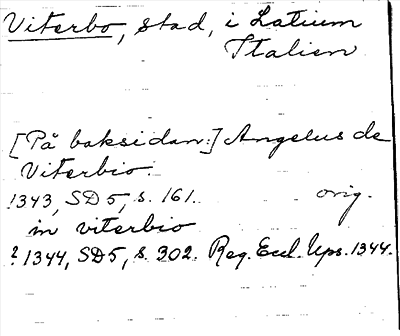 Viterbo, stad, i Latium
Italien
[På baksidan:] Angelus de
Viterbio.
1343, SD 5, s. 161. orig.
in viterbio
? 1344, SD5, s. 302. Reg. Eccl. Ups. 1344.